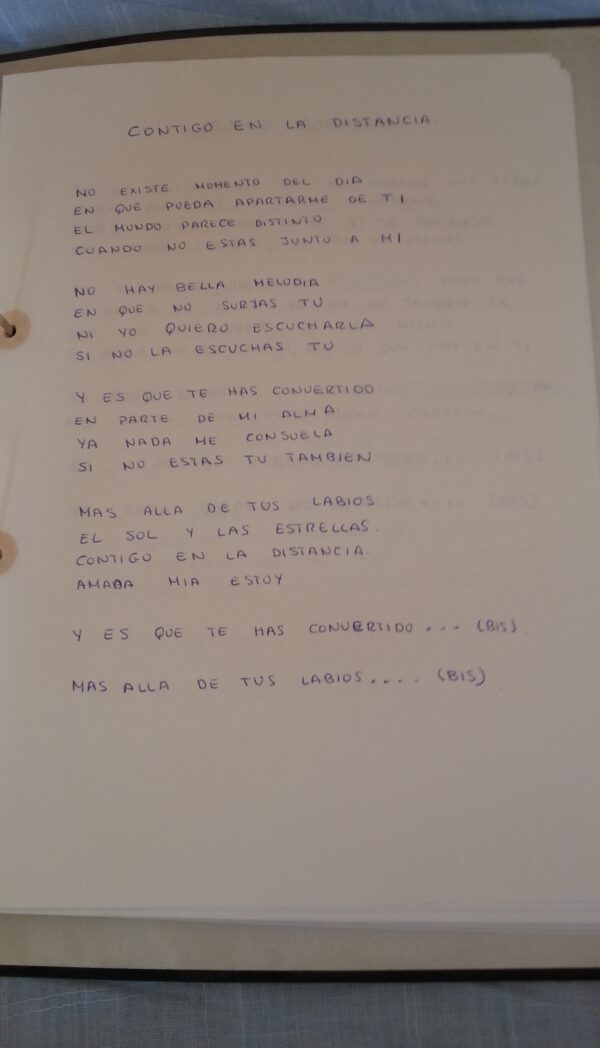 CONTIGO EN LA DISTANCIA.
NO EXISTE MOMENTO DEL DIA
EN QUE PUEDA APARTARME DE TI
EL MUNDO PARECE DISTINTO
CUANDO NO ESTAS JUNTO A MI
NO HAY BELLA MELODIA
EN QUE NO SURJAS TU
NI YO QUIERO ESCUCHARLA
SI NO LA ESCUCHAS TU
Y ES QUE TE HAS CONVERTIDO
EN PARTE DE MI ALMA
YA NADA ME CONSUELA
SI NO ESTAS TU TAMBIEN
MAS ALLA DE TUS LABIOS
EL SOL Y LAS ESTRELLAS.
CONTIGO EN LA DISTANCIA.
AMADA MIA ESTOY
Y ES QUE TE HAS CONVERTIDO... (BIS)
MAS ALLA DE TUS LABIOS.... (BIS)